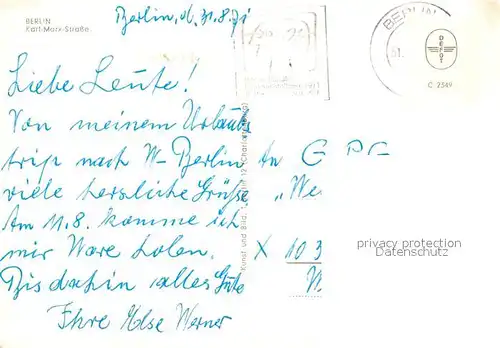 BERLIN
Karl-Marx-Straße.
Berlin, d. 31.8.71
BERLIN
DEFOT
C 2549
Liebe Leute!
Von meinem Urlaubs
trip nach W-Berlin
viele herzliche Grüße
Am 11.8. komme ich
mir Ware holen.
Bis dahin alles Gute
Ihre Werner
An
"We
X 103
Kunst und Bild, Berlin 12 (Charlottenburg)
privacy protection
Datenschutz